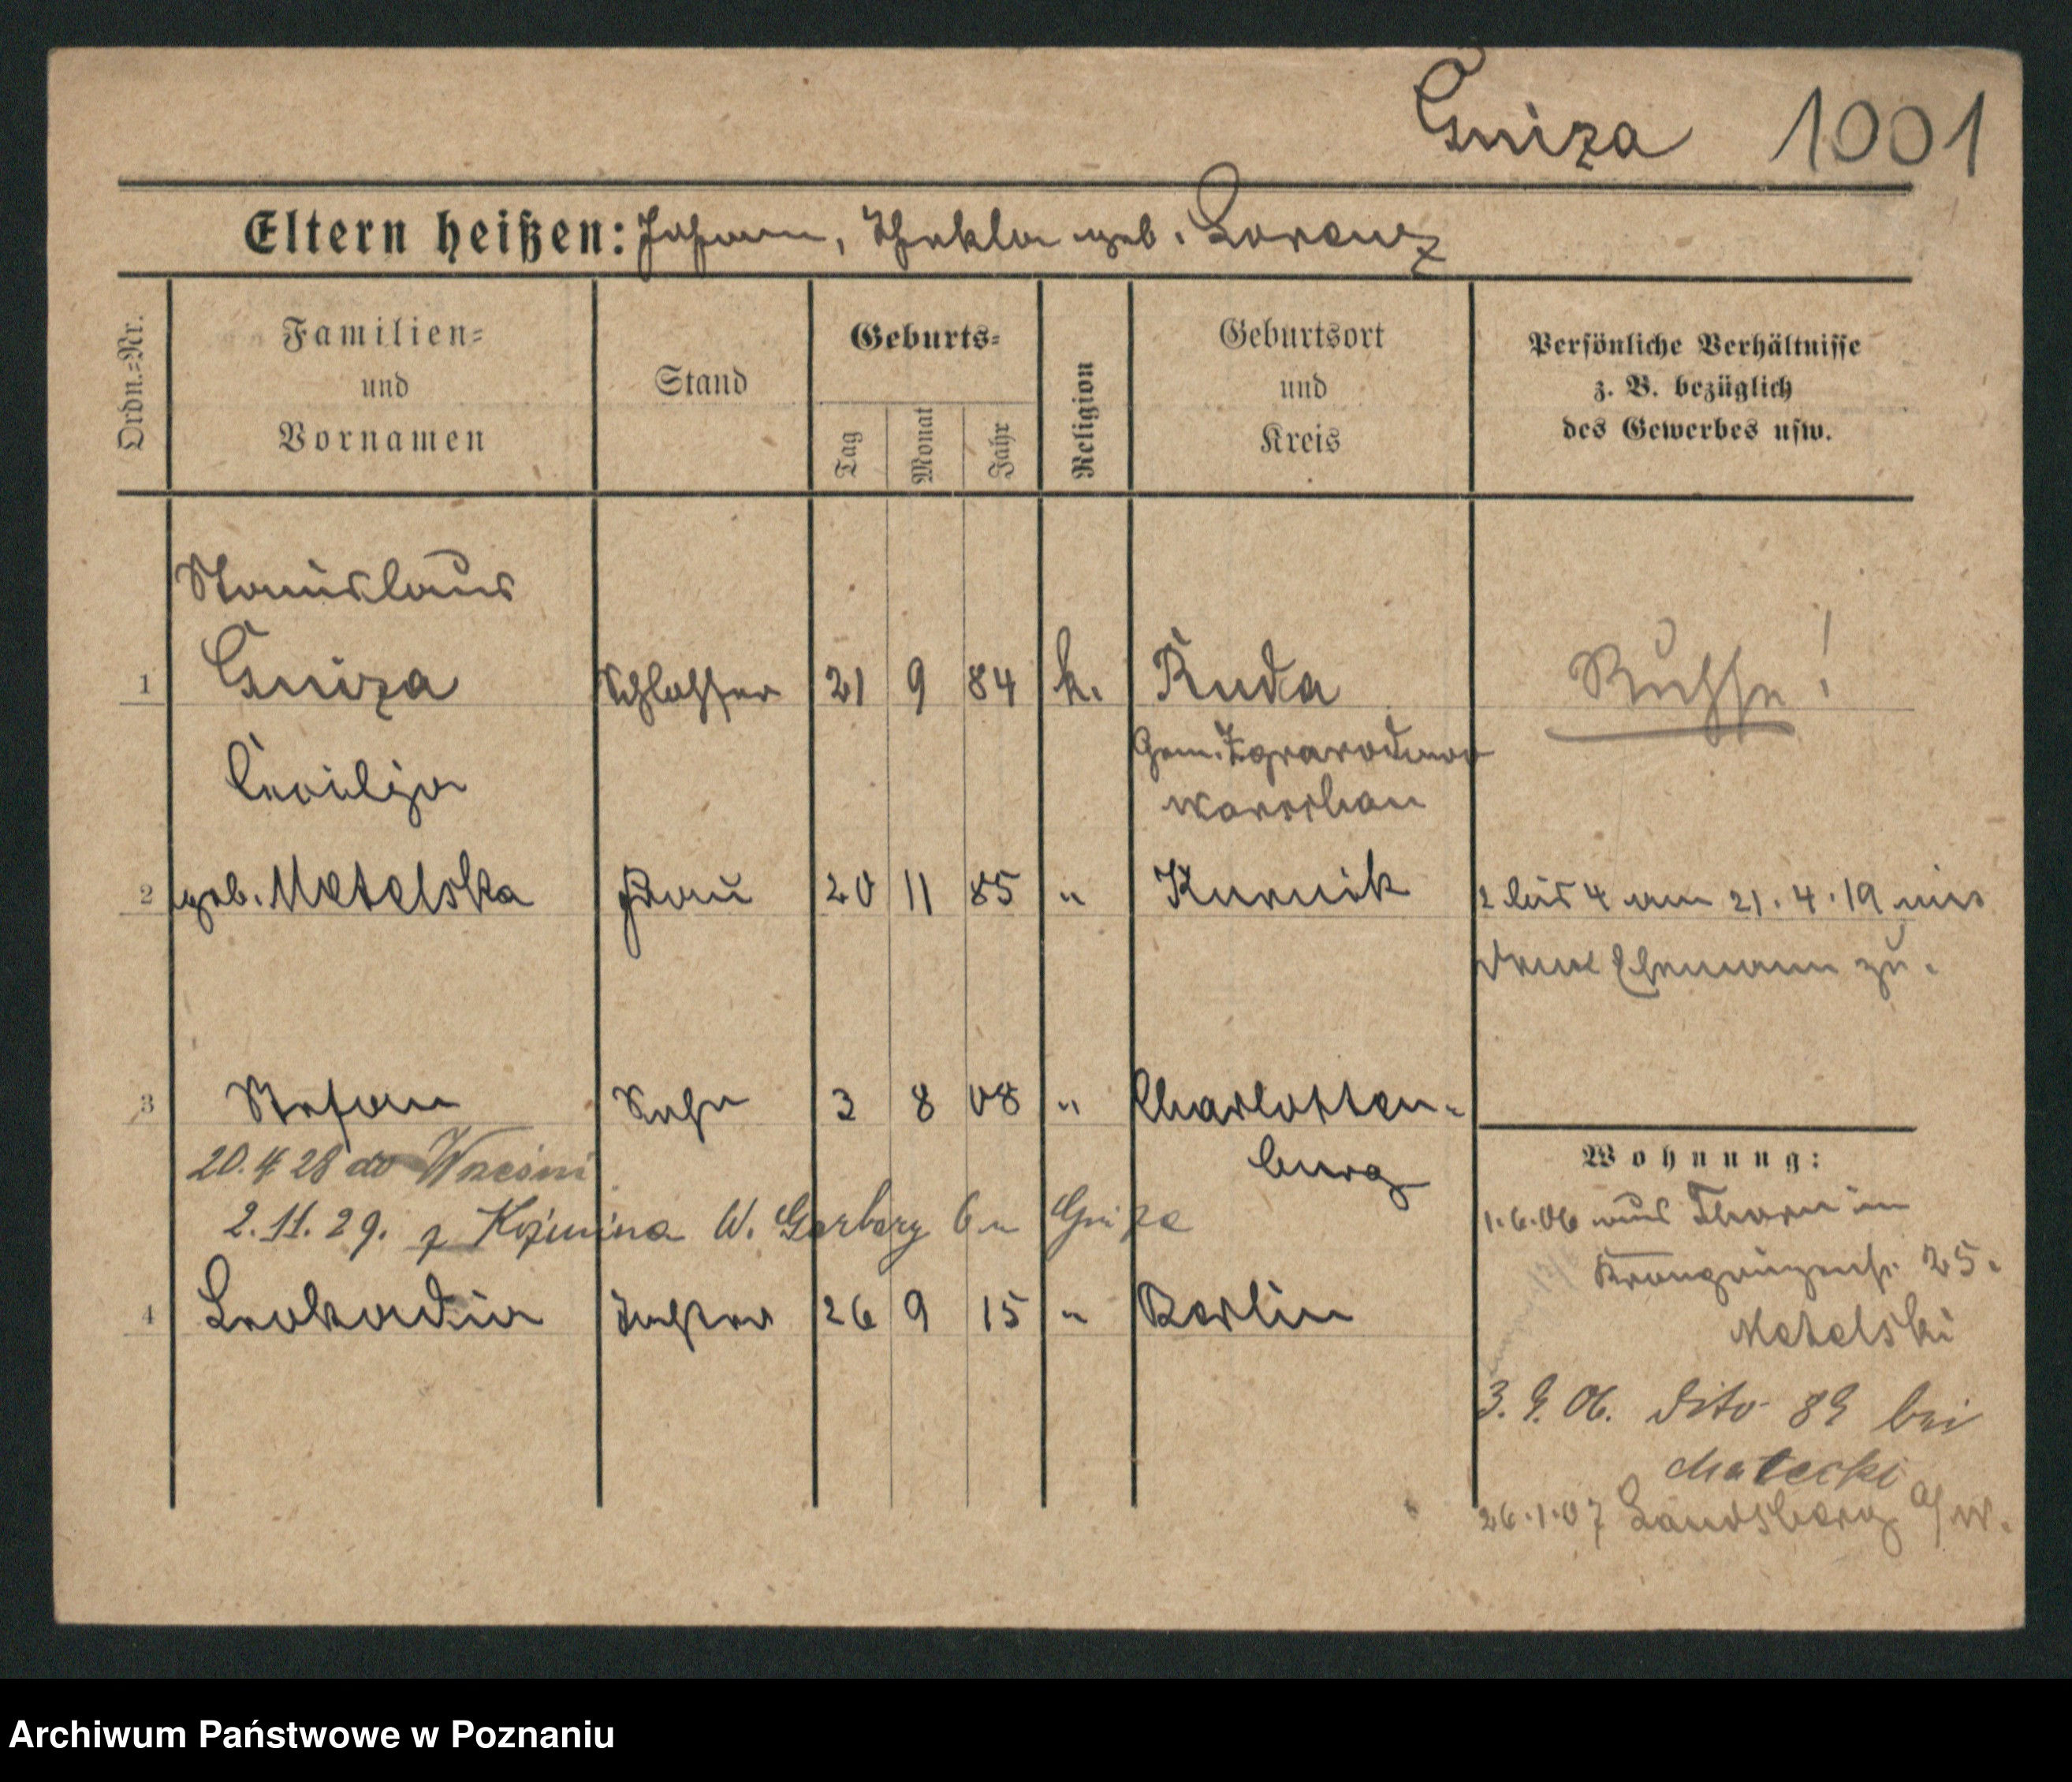 Gniza 1001
Eltern heißen: Johann, Thekla geb. Lorenz
Ordn.=Nr.
Familien=
und
Vornamen
Stand
Geburts=
Tag
Monat
Jahr
Religion
Geburtsort
und
Kreis
Persönliche Verhältnisse
z. B. bezüglich
des Gewerbes usw.
Stanislaus
1 Gniza Schlosser 21 9 84 k. Ruda Russe!
Gem.
Cecilja
Warschau
2 geb. Metelska Frau 20 11 85 " Kurnik 2 bis 4 am 21.4.19
Ehemann zu.
3 Stefan Sohn 3 8 08 " Charlotten-
burg
20.4.28 do Wrześni
2.11.29. z Koźmina W. Garbary 6 u Gniza
4 Leokadia Tochter 26 9 15 " Berlin
Wohnung:
1.6.06 aus Thorn in
Kronprinzenstr. 25.
Metelski
3.9.06. dito 89 bei
Małecki
26.1.07 Landsberg a/W.
Archiwum Państwowe w Poznaniu